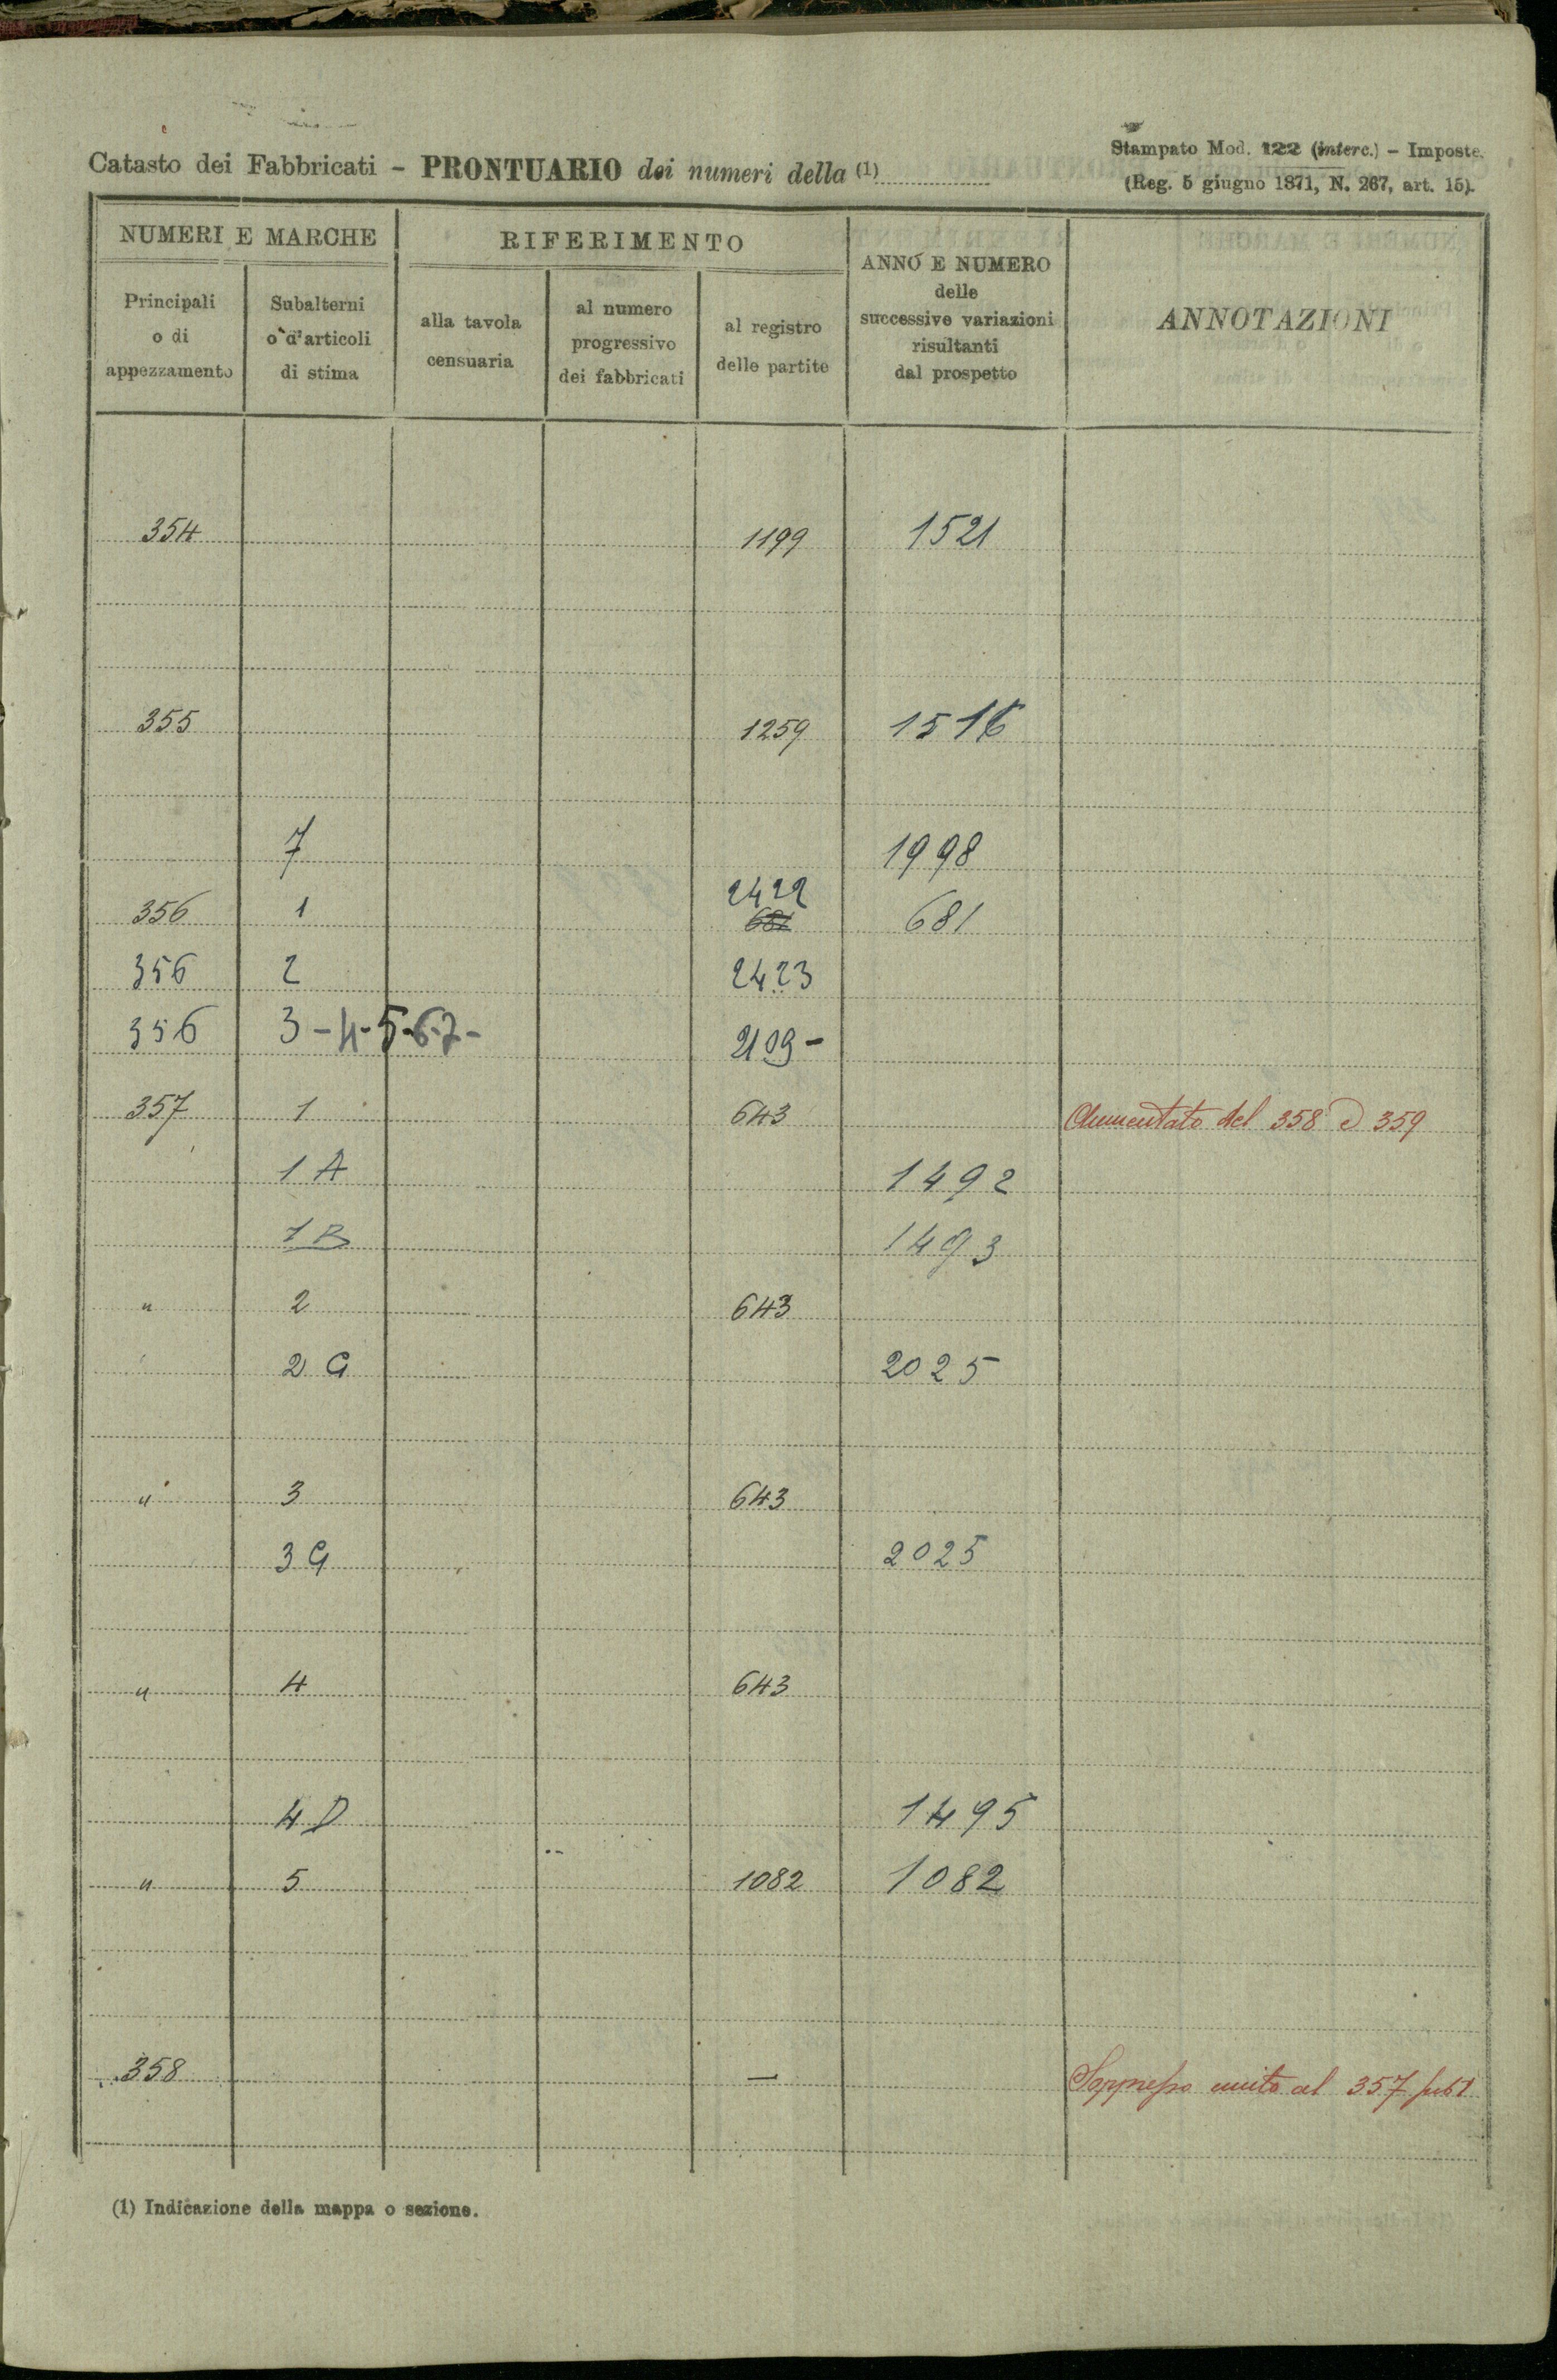 Catasto dei Fabbricati - PRONTUARIO dei numeri della (1)
Stampato Mod. 122 (interc.) - Imposte.
(Reg. 5 giugno 1871, N. 267, art. 15).
NUMERI E MARCHE
Principali
o di
appezzamento
Subalterni
o d'articoli
di stima
RIFERIMENTO
alla tavola
censuaria
al numero
progressivo
dei fabbricati
al registro
delle partite
ANNO E NUMERO
delle
successive variazioni
risultanti
dal prospetto
ANNOTAZIONI
354 1199 1521
355 1259 1516
7 1998
2422
356 1 681 681
356 2 2423
356 3-4-5-6-7- 2109-
357 1 643 Aumentato del 358 e 359
1 A 1492
1 B 1493
" 2 643
2 G 2025
" 3 643
3 G 2025
" 4 643
4 D 1495
" 5 1082 1082
358 — Soppresso unito al 357 sub 1
(1) Indicazione della mappa o sezione.